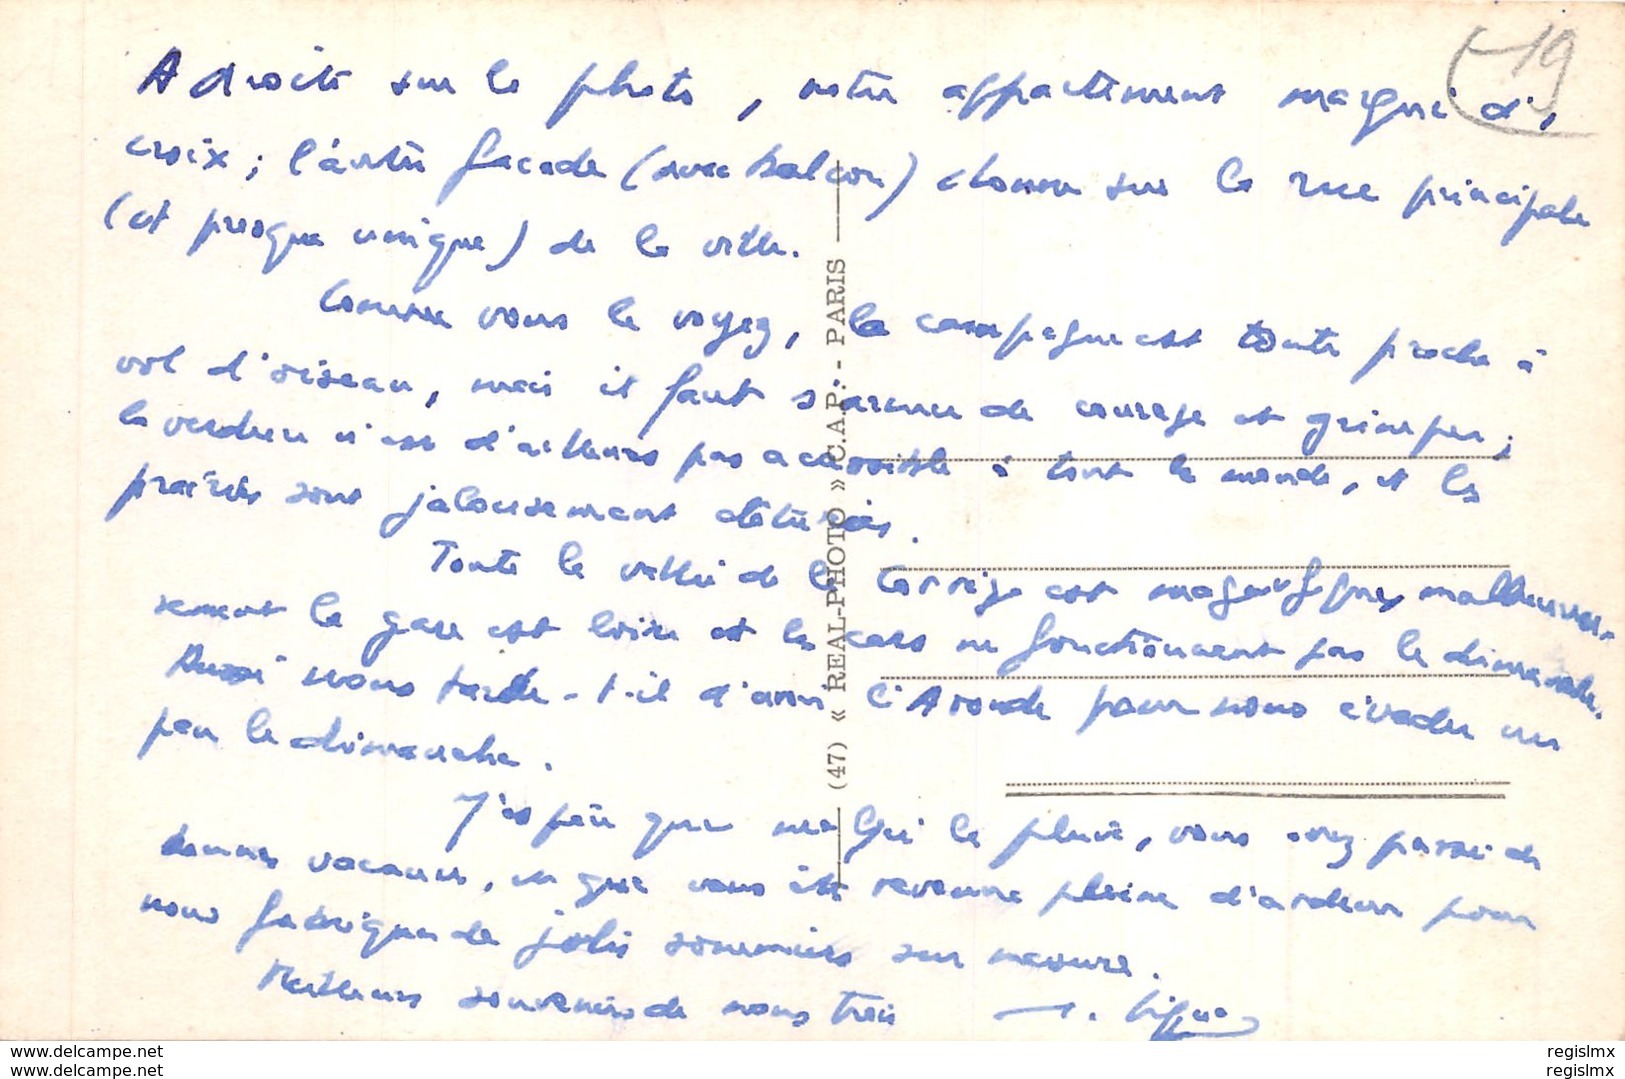 -19
A droite sur la photo, notre appartement marqué d'1
croix; l'autre façade (avec balcon) donne sur la rue principale
(et presque unique) de la ville.
Comme vous le voyez, la campagne est toute proche à
vol d'oiseau, mais il faut s'armer de courage et grimper;
la verdure n'est d'ailleurs pas accessible à tout le monde, et les
prairies sont jalousement clôturées.
Toute la vallée de la Corrèze est magnifique, malheureu-
sement la gare est loin et les cars ne fonctionnent pas le dimanche.
Aussi nous tarde-t-il d'avoir l'Aronde pour nous évader un
peu le dimanche.
J'espère que malgré la pluie, vous avez passé de
bonnes vacances, et que vous êtes revenue pleine d'ardeur pour
nous fabriquer de jolis sommiers sur mesure.
Meilleurs souvenirs de nous trois
(47) « REAL-PHOTO » C.A.P. - PARIS
delcampe.net regislmx
delcampe.net regislmx